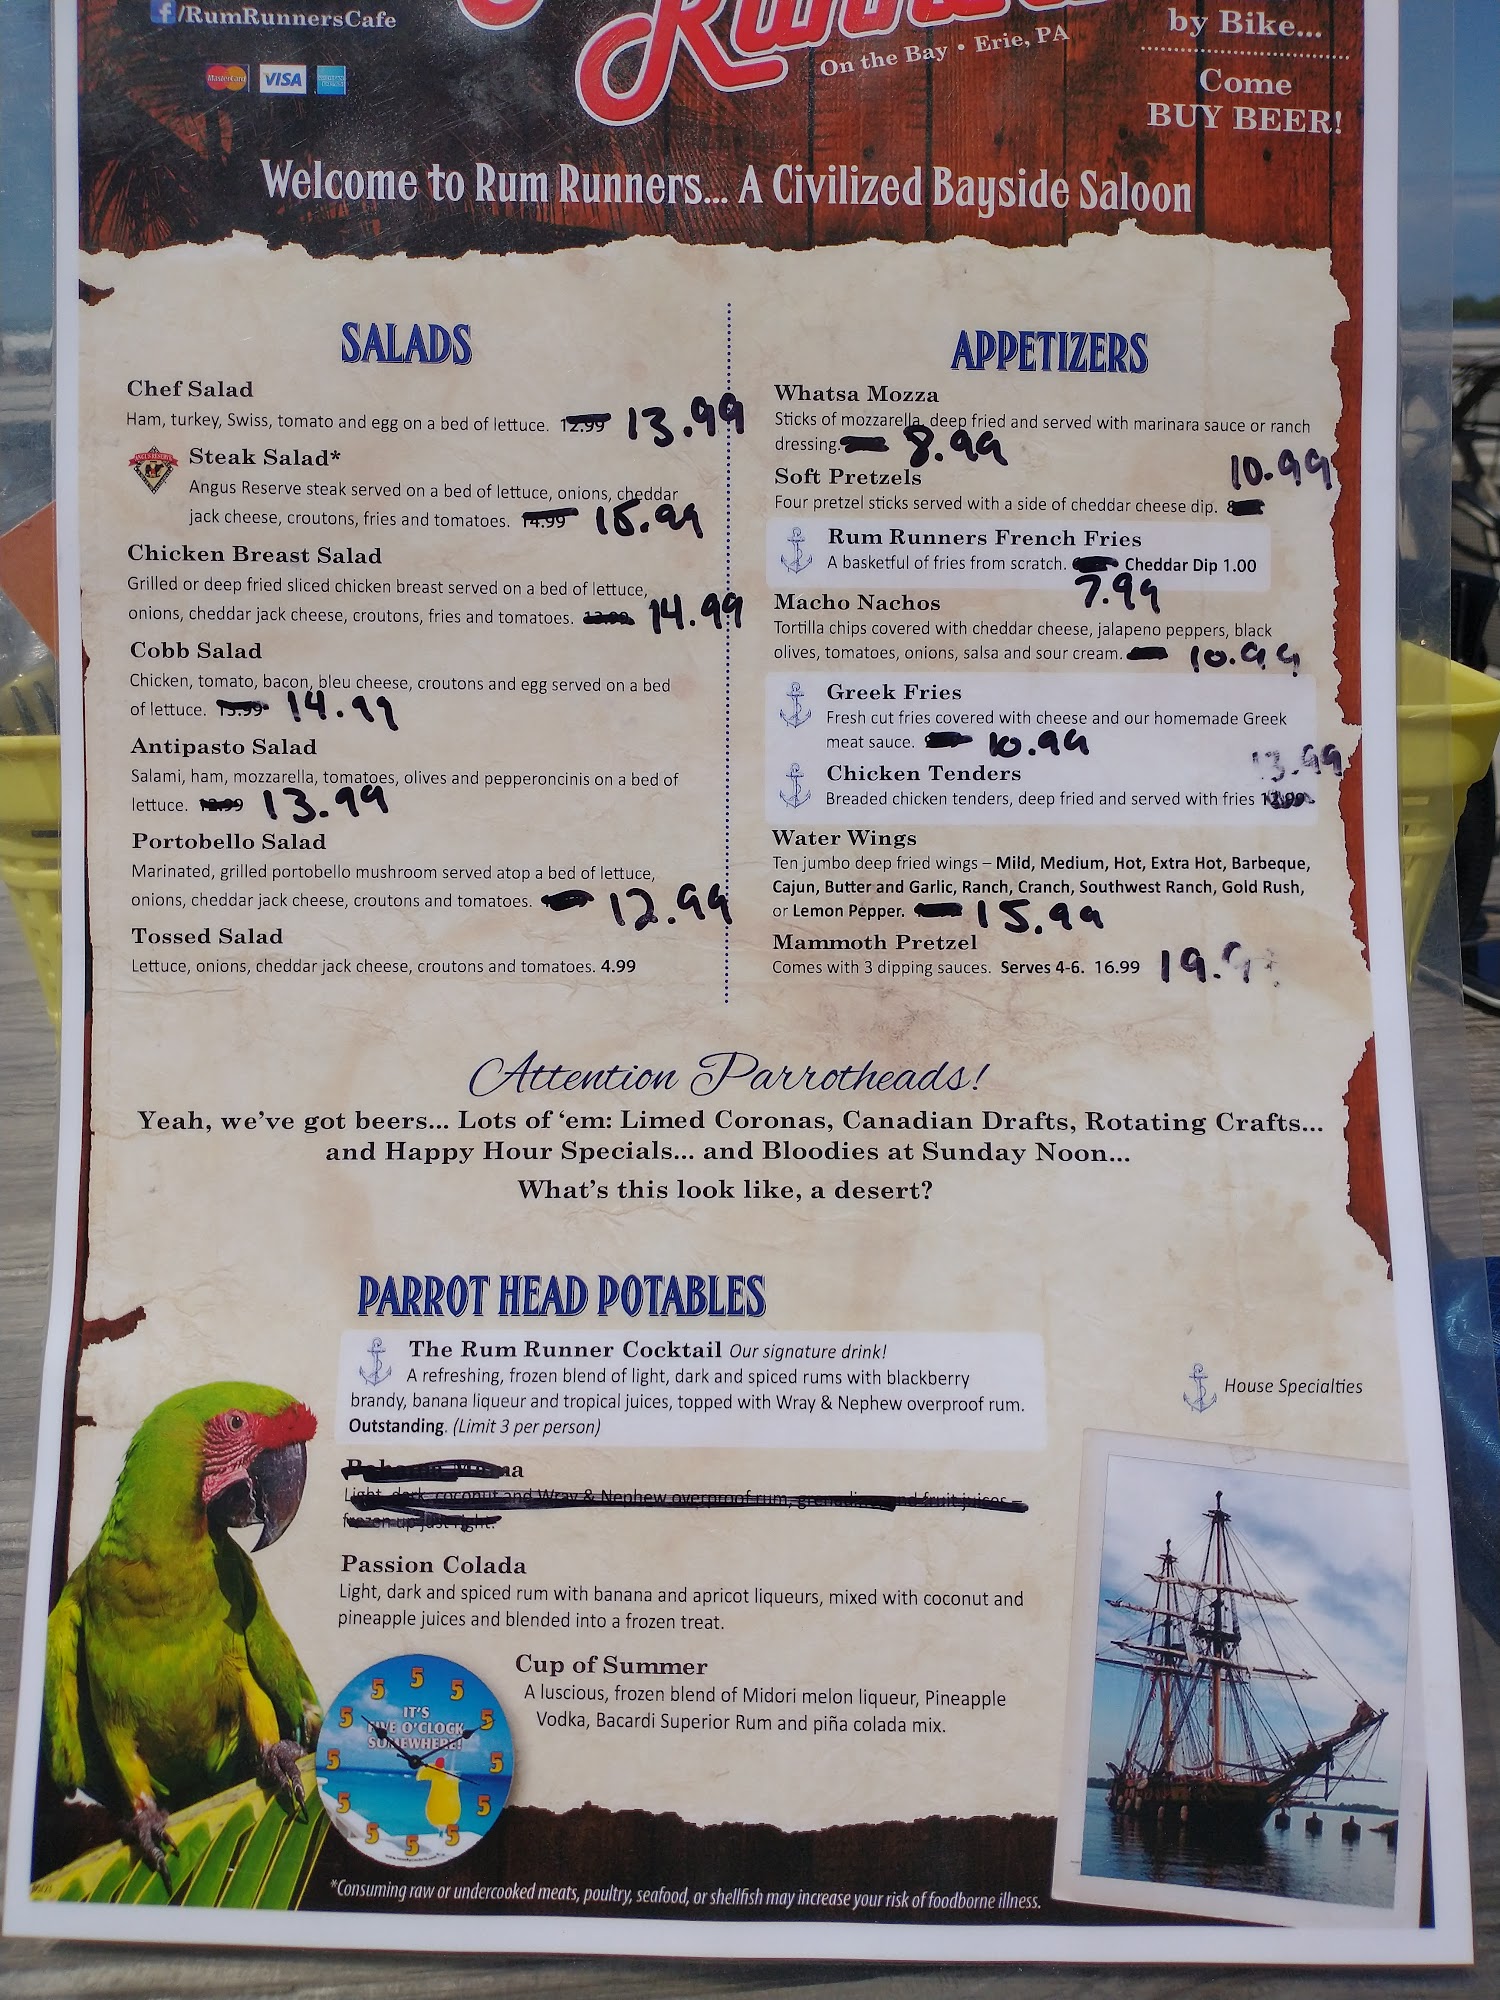 /RumRunnersCafe
MasterCard VISA
On the Bay • Erie, PA
by Bike...
Come
BUY BEER!
Welcome to Rum Runners... A Civilized Bayside Saloon
SALADS
Chef Salad
Ham, turkey, Swiss, tomato and egg on a bed of lettuce. 12.99 13.99
Steak Salad*
Angus Reserve steak served on a bed of lettuce, onions, cheddar
jack cheese, croutons, fries and tomatoes. 14.99
Chicken Breast Salad
Grilled or deep fried sliced chicken breast served on a bed of lettuce,
onions, cheddar jack cheese, croutons, fries and tomatoes. 14.99
Cobb Salad
Chicken, tomato, bacon, bleu cheese, croutons and egg served on a bed
of lettuce. 13.99 14.99
Antipasto Salad
Salami, ham, mozzarella, tomatoes, olives and pepperoncinis on a bed of
lettuce. 12.99 13.99
Portobello Salad
Marinated, grilled portobello mushroom served atop a bed of lettuce,
onions, cheddar jack cheese, croutons and tomatoes. 12.99
Tossed Salad
Lettuce, onions, cheddar jack cheese, croutons and tomatoes. 4.99
APPETIZERS
Whatsa Mozza
Sticks of mozzarella, deep fried and served with marinara sauce or ranch
dressing. 8.99
Soft Pretzels 10.99
Four pretzel sticks served with a side of cheddar cheese dip.
Rum Runners French Fries
A basketful of fries from scratch. Cheddar Dip 1.00
7.99
Macho Nachos
Tortilla chips covered with cheddar cheese, jalapeno peppers, black
olives, tomatoes, onions, salsa and sour cream. 10.99
Greek Fries
Fresh cut fries covered with cheese and our homemade Greek
meat sauce. 10.99
Chicken Tenders 13.99
Breaded chicken tenders, deep fried and served with fries 12.99
Water Wings
Ten jumbo deep fried wings – Mild, Medium, Hot, Extra Hot, Barbeque,
Cajun, Butter and Garlic, Ranch, Cranch, Southwest Ranch, Gold Rush,
or Lemon Pepper. 15.99
Mammoth Pretzel
Comes with 3 dipping sauces. Serves 4-6. 16.99
Attention Parrotheads!
Yeah, we've got beers... Lots of 'em: Limed Coronas, Canadian Drafts, Rotating Crafts...
and Happy Hour Specials... and Bloodies at Sunday Noon...
What's this look like, a desert?
PARROT HEAD POTABLES
The Rum Runner Cocktail Our signature drink!
A refreshing, frozen blend of light, dark and spiced rums with blackberry
brandy, banana liqueur and tropical juices, topped with Wray & Nephew overproof rum.
Outstanding. (Limit 3 per person)
Light, dark, coconut and Wray & Nephew overproof rum, grenadine and fruit juices –
frozen up just right.
Passion Colada
Light, dark and spiced rum with banana and apricot liqueurs, mixed with coconut and
pineapple juices and blended into a frozen treat.
Cup of Summer
A luscious, frozen blend of Midori melon liqueur, Pineapple
Vodka, Bacardi Superior Rum and piña colada mix.
House Specialties
5 5 5 5 5 5 5 5 5 5 5
IT'S
FIVE O'CLOCK
SOMEWHERE!
*Consuming raw or undercooked meats, poultry, seafood, or shellfish may increase your risk of foodborne illness.